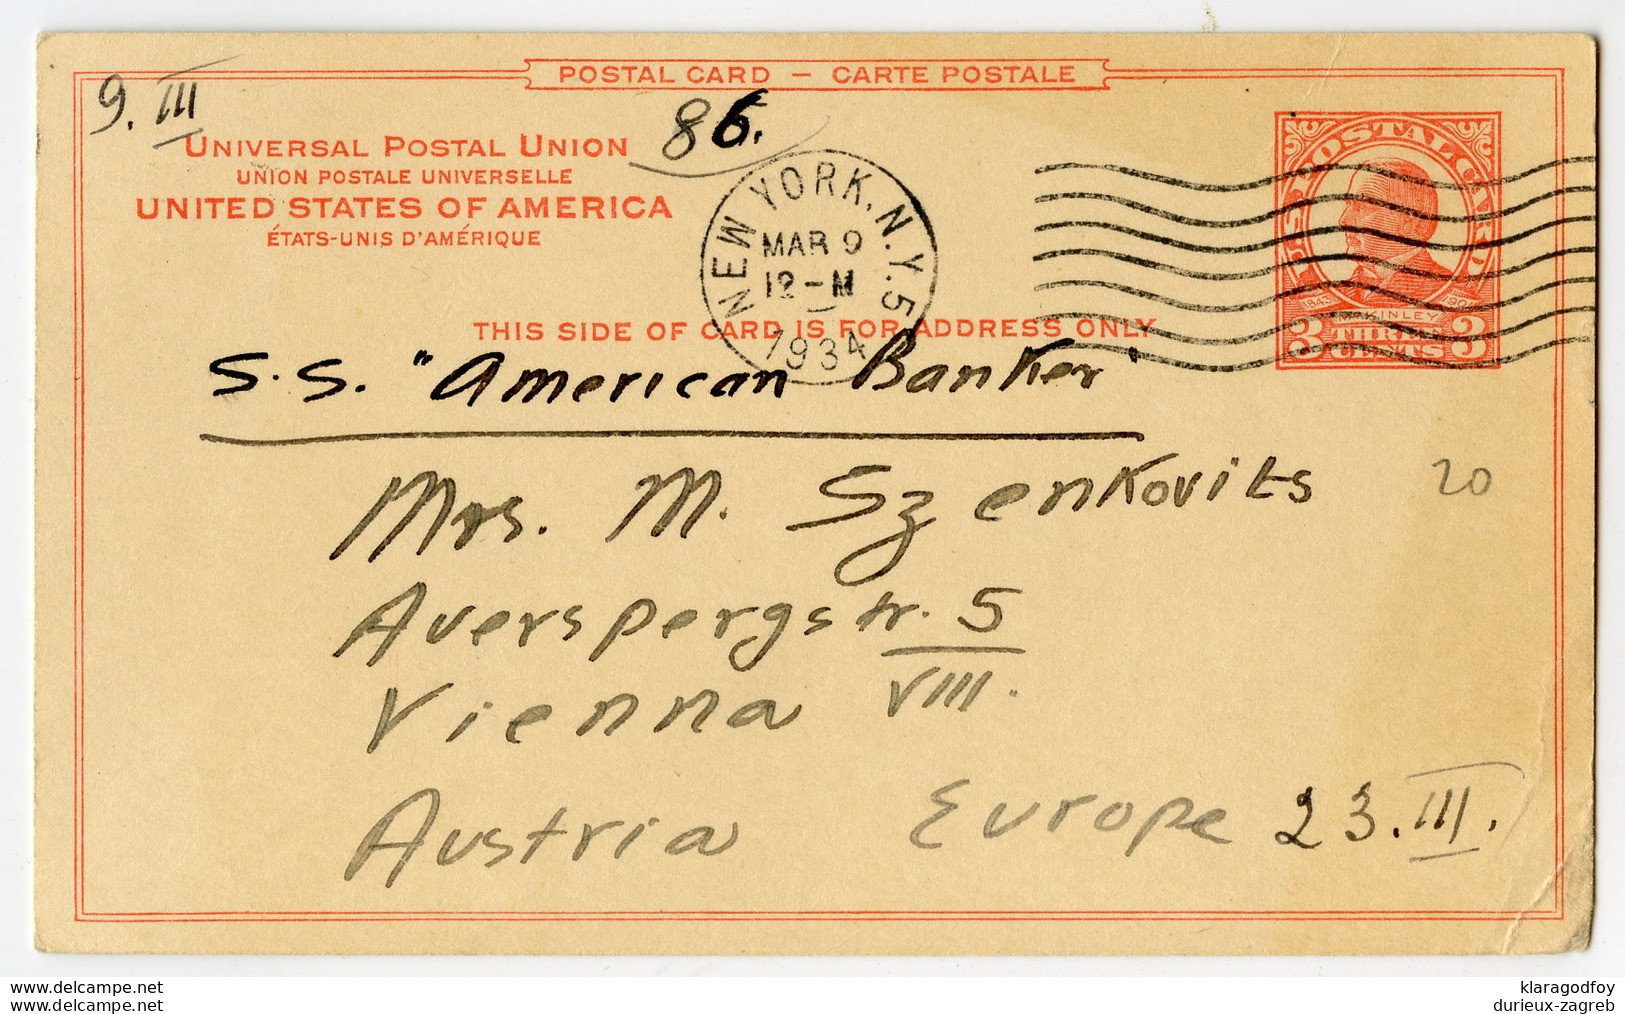 POSTAL CARD — CARTE POSTALE
9. III
86.
UNIVERSAL POSTAL UNION
UNION POSTALE UNIVERSELLE
UNITED STATES OF AMERICA
ÉTATS-UNIS D'AMÉRIQUE
NEW YORK, N.Y. 5
MAR 9
12-M
1934
U.S. POSTAL CARD
1843 1901
McKINLEY
3 THREE 3
CENTS
THIS SIDE OF CARD IS FOR ADDRESS ONLY
S.S. "American Banker"
Mrs. M. Szenkovits
20
Auerspergstr. 5
Vienna VIII.
Austria Europe 23.III.
delcampe.net
delcampe.net
klaragodfoy
durieux-zagreb